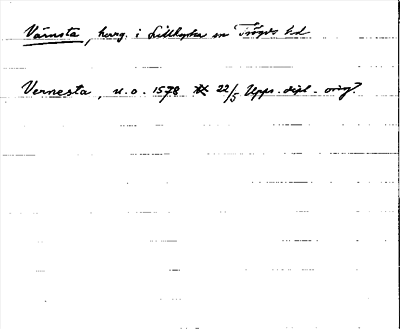 Värnsta, herrg. i Lillkyrka sn Trögds hd
Vernesta, u. o. 1578 22/5 Upps. dipl. orig.